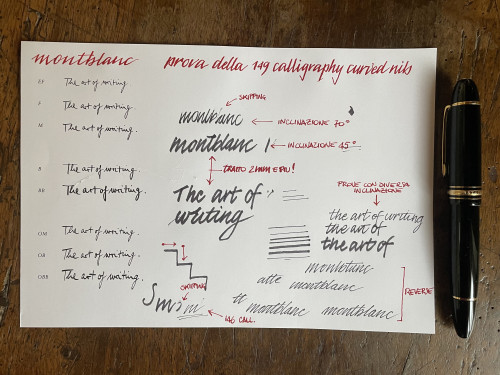 montblanc
prova della 149 calligraphy curved nib
EF The art of writing
F The art of writing.
M The art of writing.
B The art of writing.
BB The art of writing.
OM The art of writing.
OB The art of writing.
OBB The art of writing.
SKIPPING
montblanc ← INCLINAZIONE 70°
montblanc ← INCLINAZIONE 45°
TRATTO 2MM E PIU!
The art of
writing
PROVE CON DIVERSA
INCLINAZIONE
the art of writing
the art of
the art of
SKIPPING
146 CALL.
montblanc
montblanc
montblanc montblanc
REVERSE